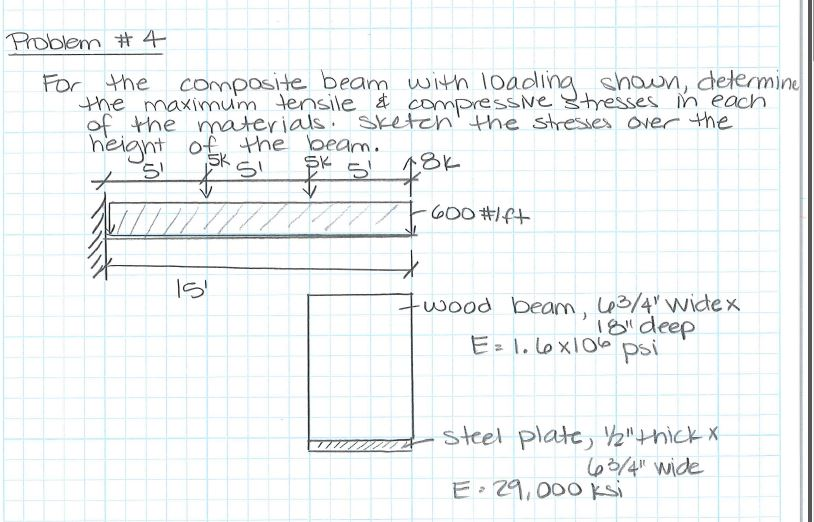 Problem # 4
For the composite beam with loading shown, determine
the maximum tensile & compressive stresses in each
of the materials. Sketch the stresses over the
height of the beam.
5' 5K 5' 5K 5' 8K
600 #/ft
15'
wood beam, 6 3/4" wide x
18" deep
E = 1.6x10⁶ psi
steel plate, 1/2" thick x
6 3/4" wide
E = 29,000 ksi